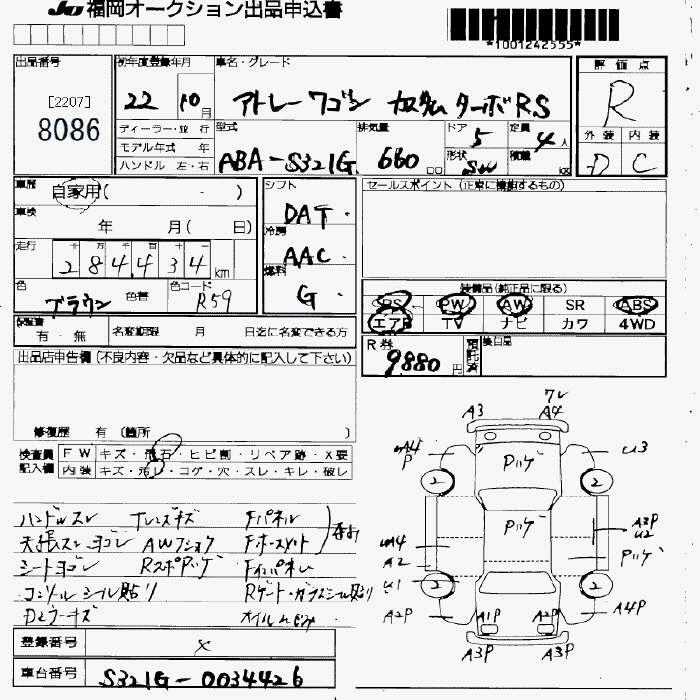 JU 福岡オークション出品申込書
*1001242555*
出品番号
[2207]
8086
初年度登録年月
22 10月
車名・グレード
アトレーワゴン カスタムターボRS
評価点
R
外装 内装
D C
ディーラー・並行
モデル年式 年
ハンドル 左・右
型式
ABA-S321G
排気量
660 cc
ドア
5
形状
SW
定員
4人
積載
kg
車歴
自家用( ・ )
車検
年 月( 日)
走行
十 万 千 百 十 一
284434 km
色
ブラウン
色替
色コード
R59
シフト
DAT
冷房
AAC
燃料
G
セールスポイント (正常に機能するもの)
装備品(純正品に限る)
SRS PW AW SR ABS
エアB TV ナビ カワ 4WD
保証書
有・無
名変期限 月 日迄に名変できる方
R券
9880円
預託済
後日品
出品店申告欄(不良内容・欠品など具体的に記入して下さい)
修復歴 有 (箇所 )
検査員記入欄
FW キズ・飛石・ヒビ割・リペア跡・X要
内装 キズ・汚レ・コゲ・穴・スレ・キレ・破レ
ハンドルスレ Tレンズキズ Fパネル
天張スレ ヨゴレ AWフショク Fホースメント
シートヨゴレ
コンソール シール貼り Rゲート・ガラスシール貼り
オイルにじみ
登録番号
メ
車台番号
S321G-0034426
A3 A4
A4 P
U3
Pハゲ
2 2
Pハゲ
A3P
U2
A4
A2
Pハゲ
U1
2 2
A2P A1P A2P A4P
A3P A3P